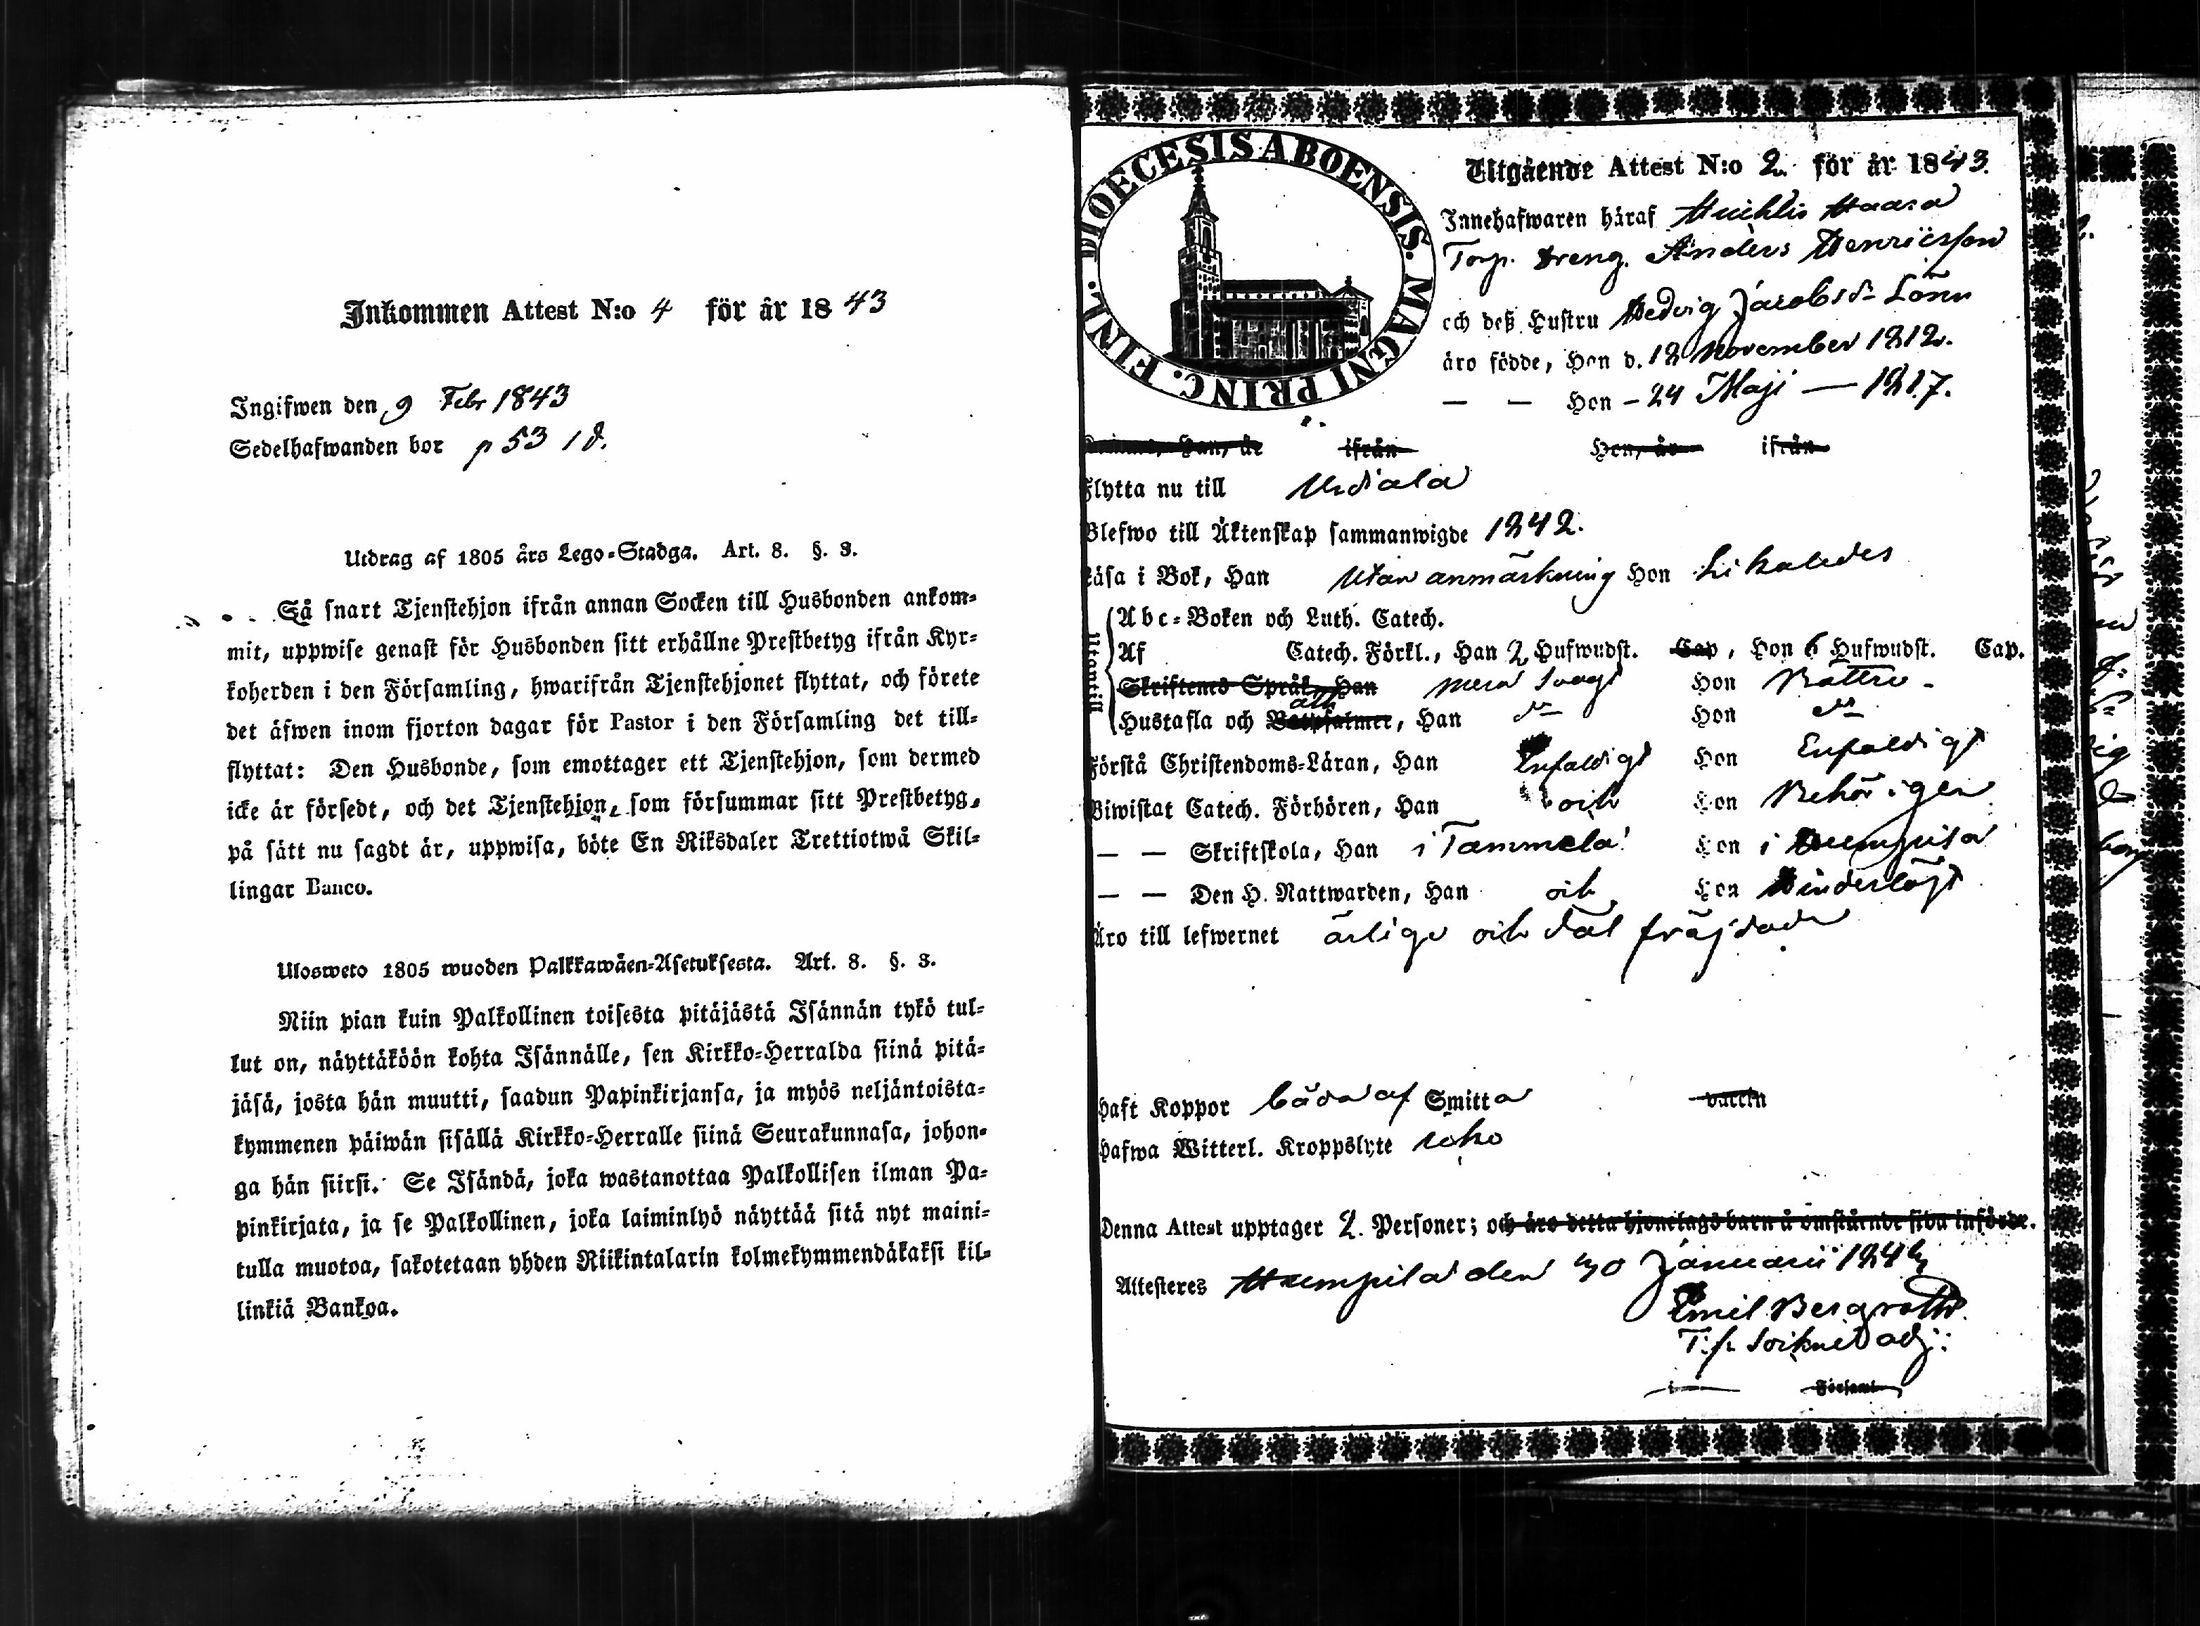 Inkommen Attest N:o 4 för år 1843
Ingifwen den 9 Febr 1843
Sedelhafwanden bor p 53 1 d.
Utdrag af 1805 års Lego-Stadga. Art. 8. §. 3.
Så snart Tjenstehjon ifrån annan Socken till Husbonden ankom-
mit, uppwise genast för Husbonden sitt erhållne Prestbetyg ifrån Kyr-
koherden i den Församling, hwarifrån Tjenstehjonet flyttat, och förete
det äfwen inom fjorton dagar för Pastor i den Församling det till-
flyttat: Den Husbonde, som emottager ett Tjenstehjon, som dermed
icke är försedt, och det Tjenstehjon, som försummar sitt Prestbetyg,
på sätt nu sagdt är, uppwisa, böte En Riksdaler Trettiotwå Skil-
lingar Banco.
Ulosweto 1805 wuoden Palkkawäen-Asetuksesta. Art. 8. §. 3.
Niin pian kuin Palkollinen toisesta pitäjästä Isännän tykö tul-
lut on, näyttäköön kohta Isännälle, sen Kirkko-Herralda siinä pitä-
jäsä, josta hän muutti, saadun Papinkirjansa, ja myös neljäntoista-
kymmenen päiwän sisällä Kirkko-Herralle siinä Seurakunnasa, johon-
ga hän siirsi. Se Isändä, joka wastanottaa Palkollisen ilman Pa-
pinkirjata, ja se Palkollinen, joka laiminlyö näyttää sitä nyt maini-
tulla muotoa, sakotetaan yhden Riikintalarin kolmekymmendäkaksi kil-
linkiä Bankoa.
DIOECESIS ABOENSIS. MAGNI PRINC. FINL.
Utgående Attest N:o 2 för år 1843.
Innehafwaren häraf Huhtis Haara
Torp. Dreng. Anders Henricsson
och deß Hustru Hedvig Jacobsd:r Lönn
äro födde, Han d. 18 November 1812.
— — Hon - 24 Maji — 1817.
ifrån Hon, är ifrån
Flytta nu till Urdiala
Blefwo till Äktenskap sammanwigde 1842.
Läsa i Bok, Han Utan anmärkning Hon Likaledes
Utantill
Abc-Boken och Luth. Catech.
Af Catech. Förkl., Han 2 Hufwudst. Cap, Hon 6 Hufwudst. Cap.
Skriftenes Språk, Han mera svagt Hon Bättre -
Hustafla och Botpsalmer, Han d:o Hon d:o
Förstå Christendoms-Läran, Han Enfaldigt Hon Enfaldigt
Biwistat Catech. Förhören, Han och Hon Behörigen
— — Skriftskola, Han i Tammela Hon i Humpila
— — Den H. Nattwarden, Han och Hon Hinderlöst
Äro till lefwernet ärlige och väl fräjdade
Haft Koppor båda af Smitta vaccin
Hafwa Witterl. Kroppslyte icke
Denna Attest upptager 2. Personer; och äro detta hjonelags barn å omstående sida införde.
Attesteres Humpila den 30 Januarii 1843
Emil Bergroth
T.f. Sockne adj:
i Församl.